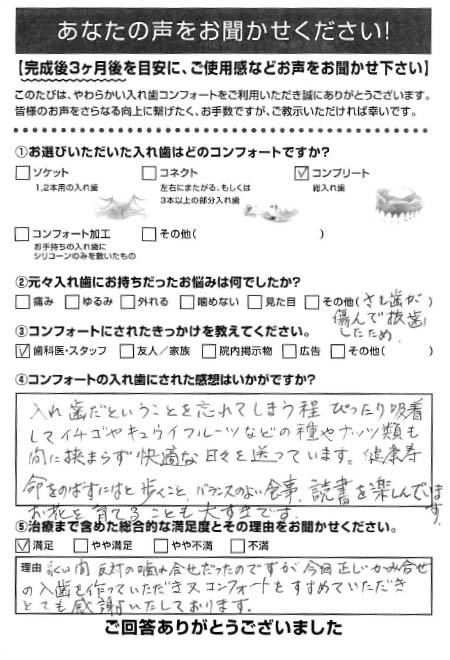 あなたの声をお聞かせください!
【完成後3ヶ月後を目安に、ご使用感などお声をお聞かせ下さい】
このたびは、やわらかい入れ歯コンフォートをご利用いただき誠にありがとうございます。
皆様のお声をさらなる向上に繋げたく、お手数ですが、ご教示いただければ幸いです。
①お選びいただいた入れ歯はどのコンフォートですか?
ソケット
1,2本用の入れ歯
コネクト
左右にまたがる、もしくは
3本以上の部分入れ歯
コンプリート
総入れ歯
コンフォート加工
お手持ちの入れ歯に
シリコーンのみを敷いたもの
その他( )
②元々入れ歯にお持ちだったお悩みは何でしたか?
痛み ゆるみ 外れる 噛めない 見た目 その他(さし歯が)
傷んで抜歯
したため
③コンフォートにされたきっかけを教えてください。
歯科医・スタッフ 友人/家族 院内掲示物 広告 その他( )
④コンフォートの入れ歯にされた感想はいかがですか?
入れ歯だということを忘れてしまう程 ぴったり吸着
してイチゴやキュウイフルーツなどの種やナッツ類も
間に挟まらず快適な日々を送っています。健康寿
命をのばすにはと歩くこと、バランスのよい食事、読書を楽しんでいます
お花を育てることも大すきです。
⑤治療まで含めた総合的な満足度とその理由をお聞かせください。
満足 やや満足 やや不満 不満
理由 永い間 反対の噛み合せだったのですが今回正しいかみ合せ
の入歯を作っていただき又コンフォートをすすめていただき
とても感謝いたしております。
ご回答ありがとうございました